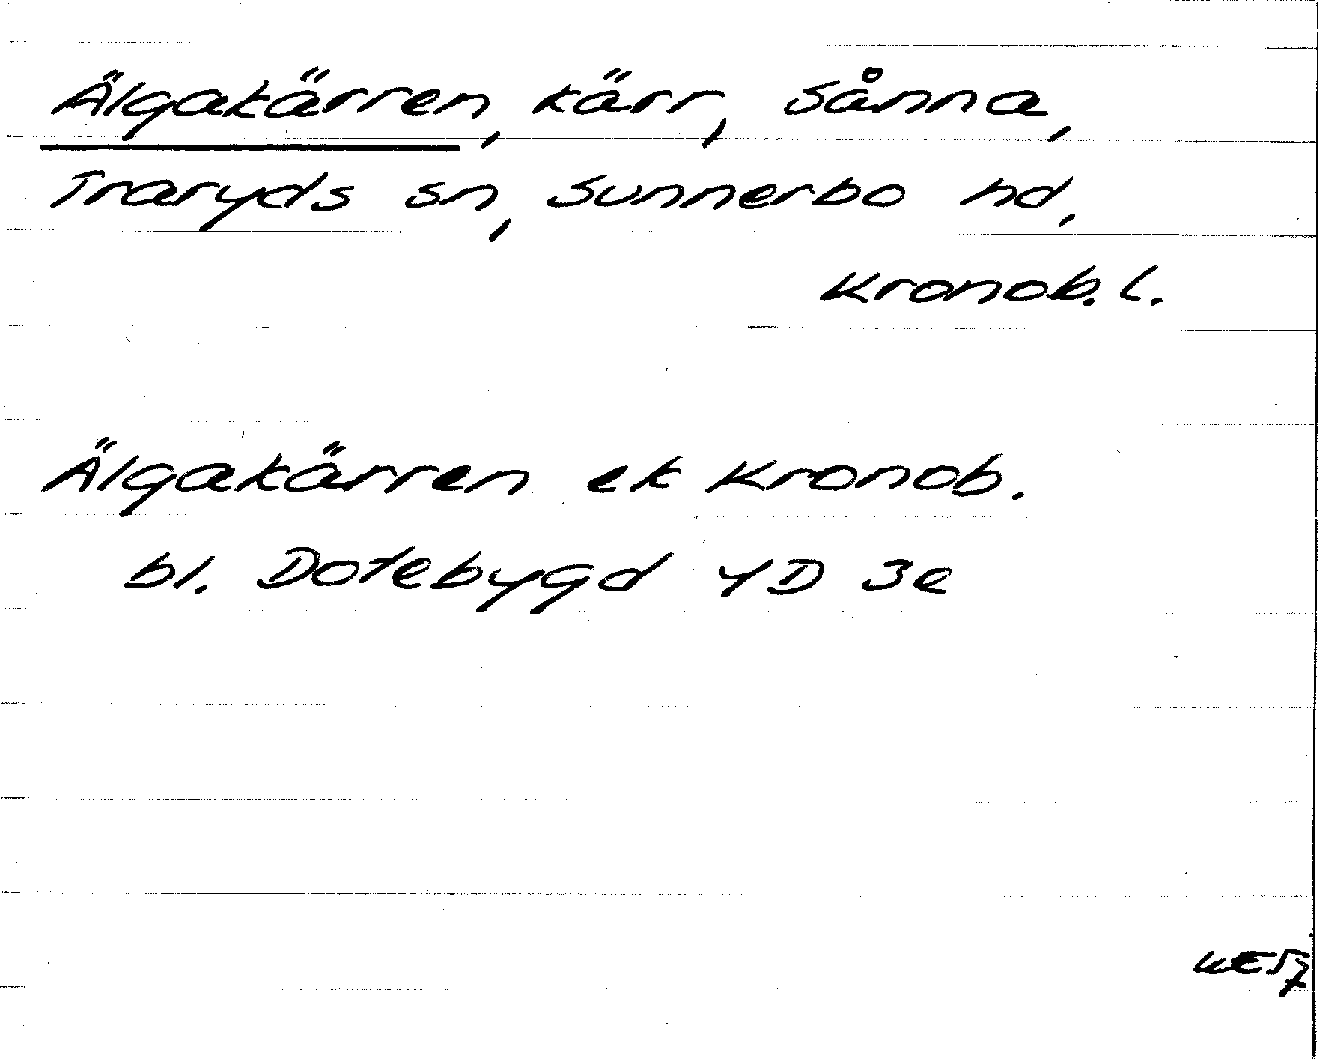 Älgakärren, kärr, Sånna,
Traryds sn, Sunnerbo hd,
Kronob. l.
Älgakärren ek Kronob.
bl. Dotebygd 4D 3e